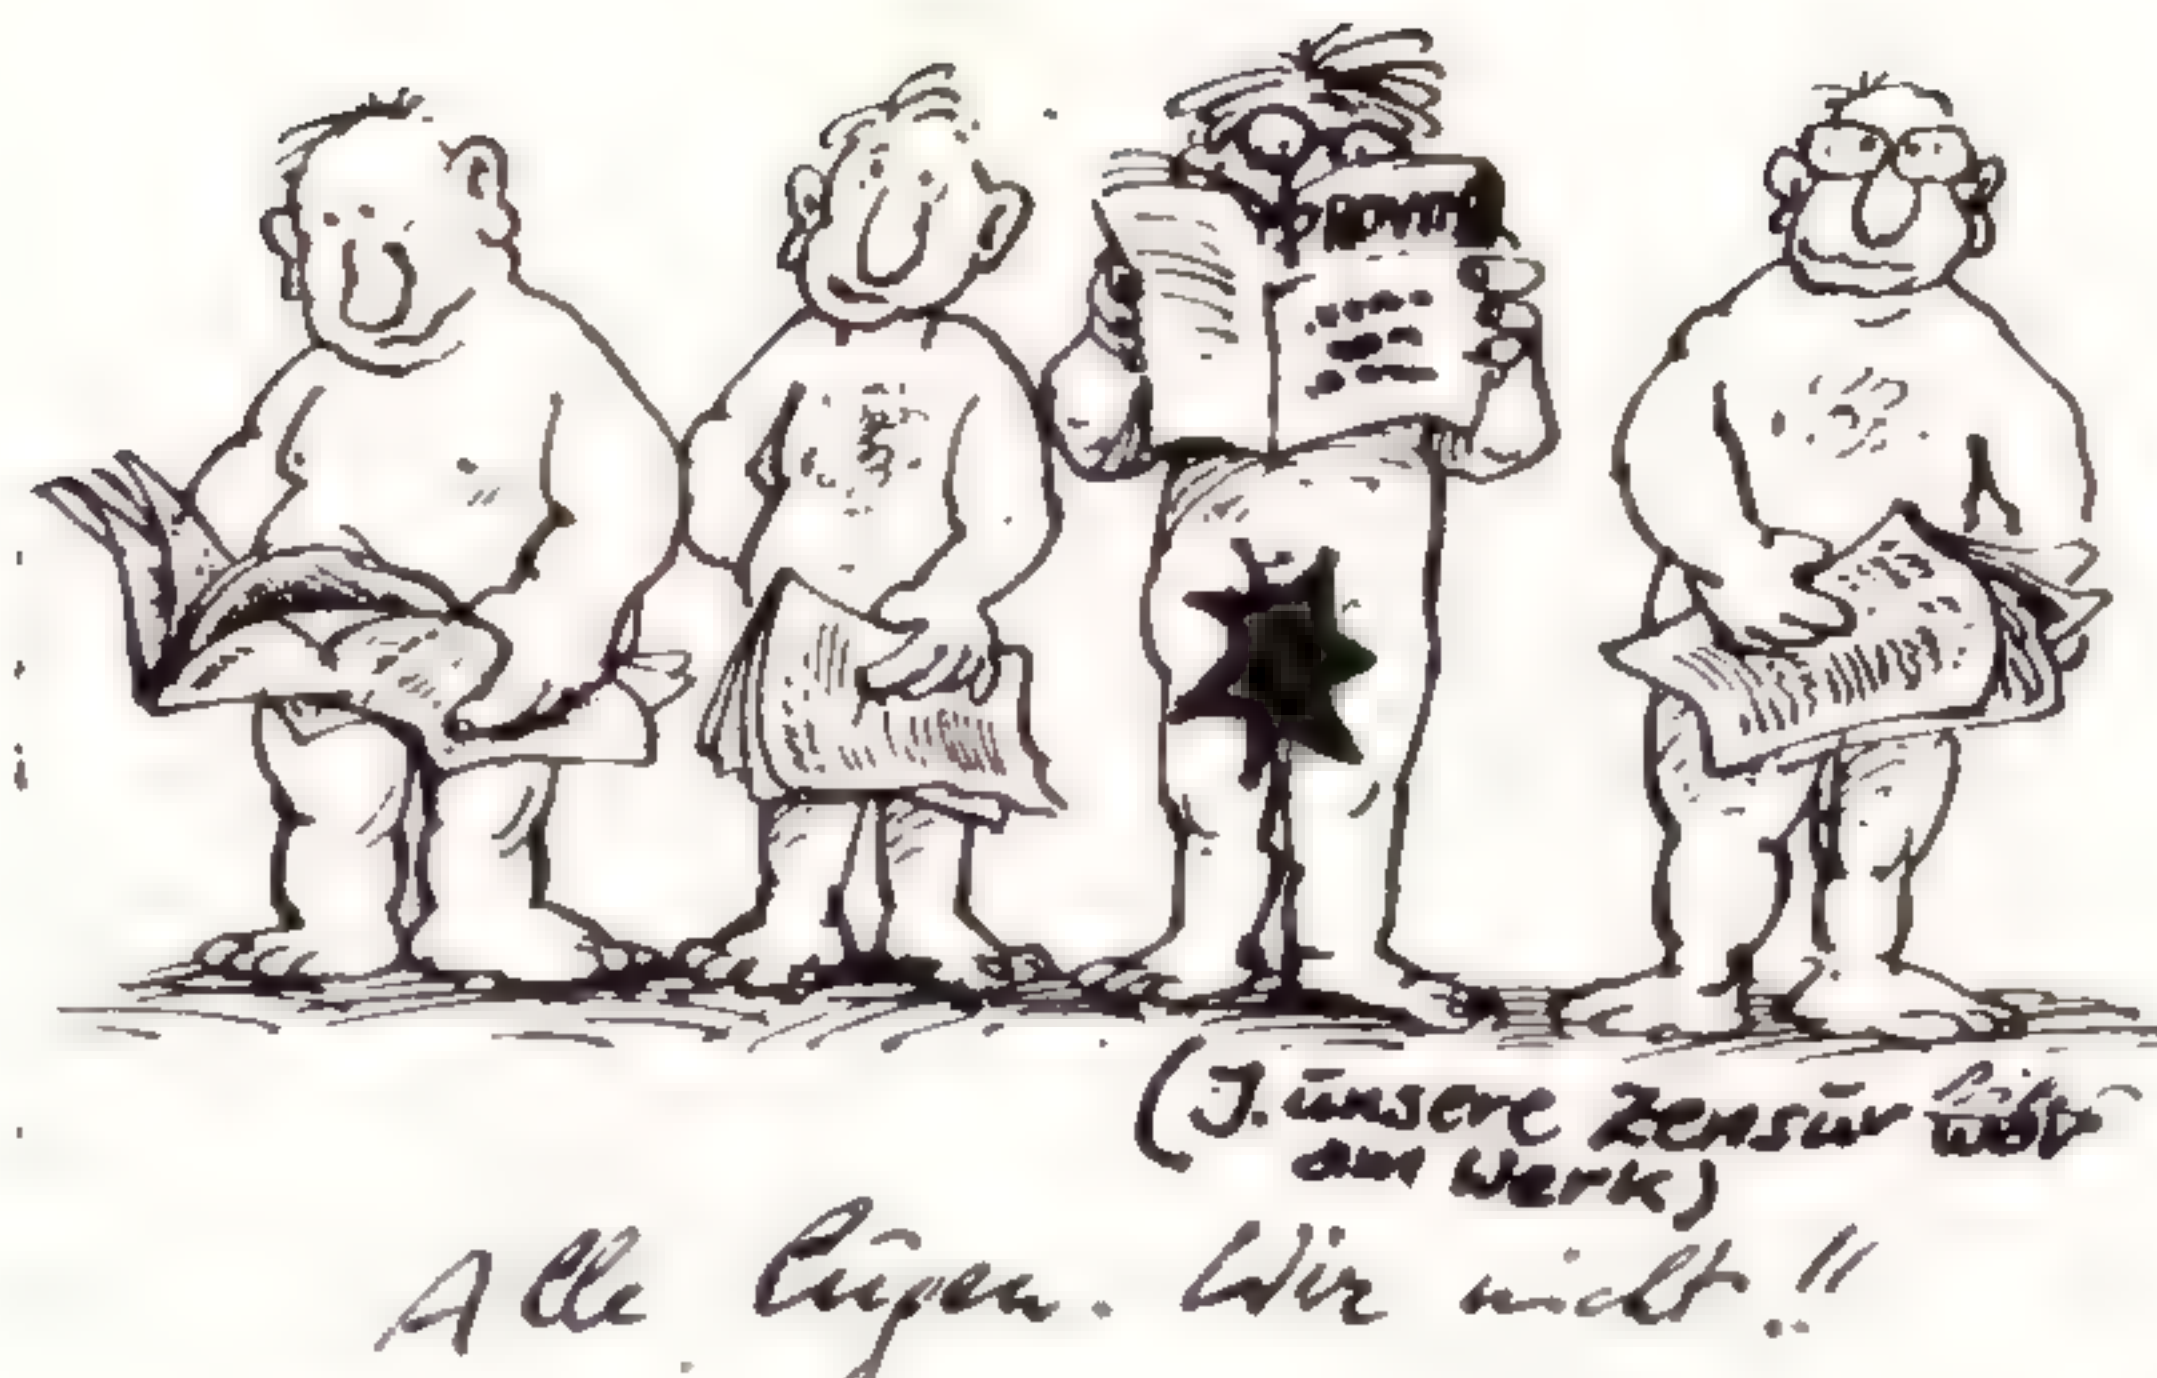 (J. unsere Zensur
am Werk)
Alle lügen. Wir nicht!!